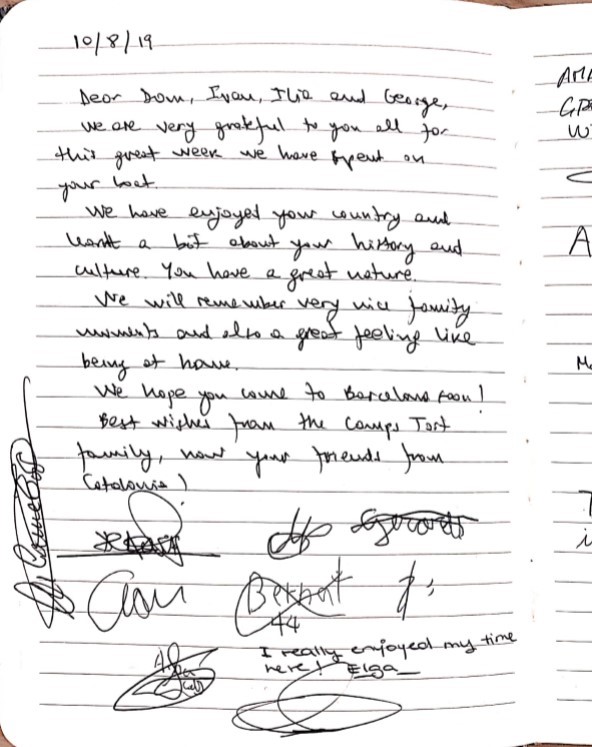 10/8/19
Dear Dom, Ivan, Ilia and George,
we are very grateful to you all for
this great week we have spent on
your boat.
We have enjoyed your country and
learnt a bit about your history and
culture. You have a great nature.
We will remember very nice family
moments and also a great feeling like
being at home.
We hope you come to Barcelona soon!
Best wishes from the Camps Tort
family, now your friends from
Catalonia!
Gerard
Bernat
44
I really enjoyed my time
here! Elga
AMA
W
A